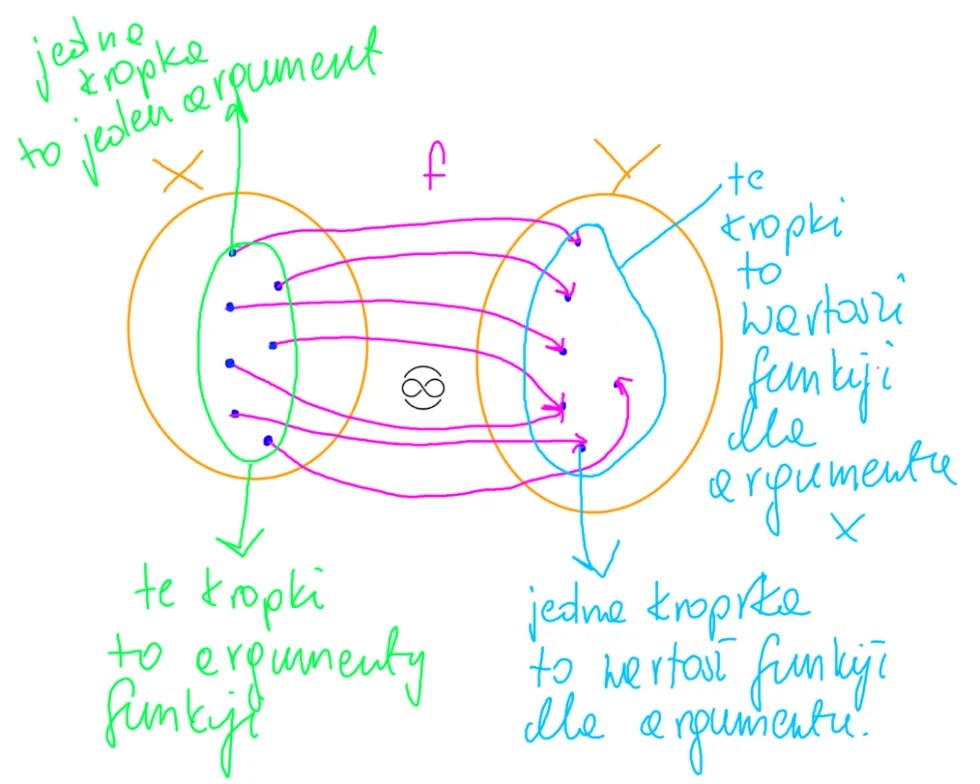 jedna
kropka
to jeden argument
X
f
Y
te
kropki
to
wartości
funkcji
dla
argumentu
x
∞
te kropki
to argumenty
funkcji
jedna kroprka
to wartość funkcji
dla argumentu.